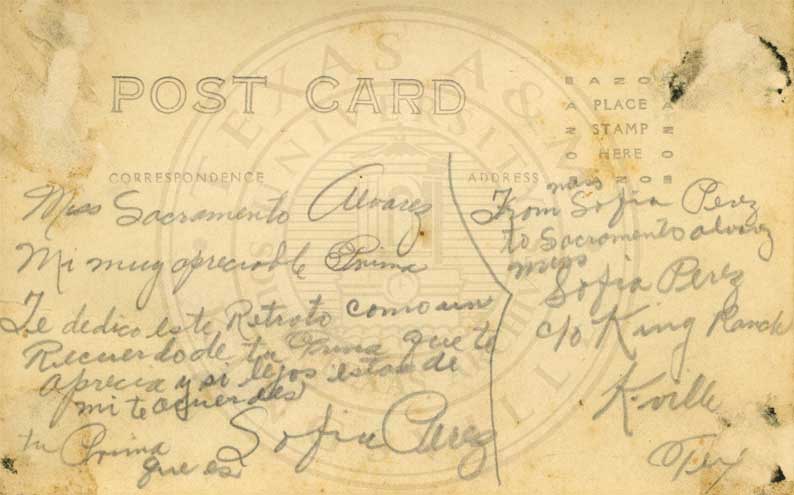 POST CARD
AZO
PLACE
STAMP
HERE
CORRESPONDENCE
ADDRESS
Miss Sacramento Alvarez
Mi muy apreciable Prima
Te dedico este Retrato como un
Recuerdo de tu Prima que te
aprecia y si lejos estas de
mi te acuerdas
tu Prima
que es Sofia Perez
From Sofia Perez
to Sacramento alvarez
Sofia Perez
c/o King Ranch
K-ville
Tex
TEXAS A&M UNIVERSITY